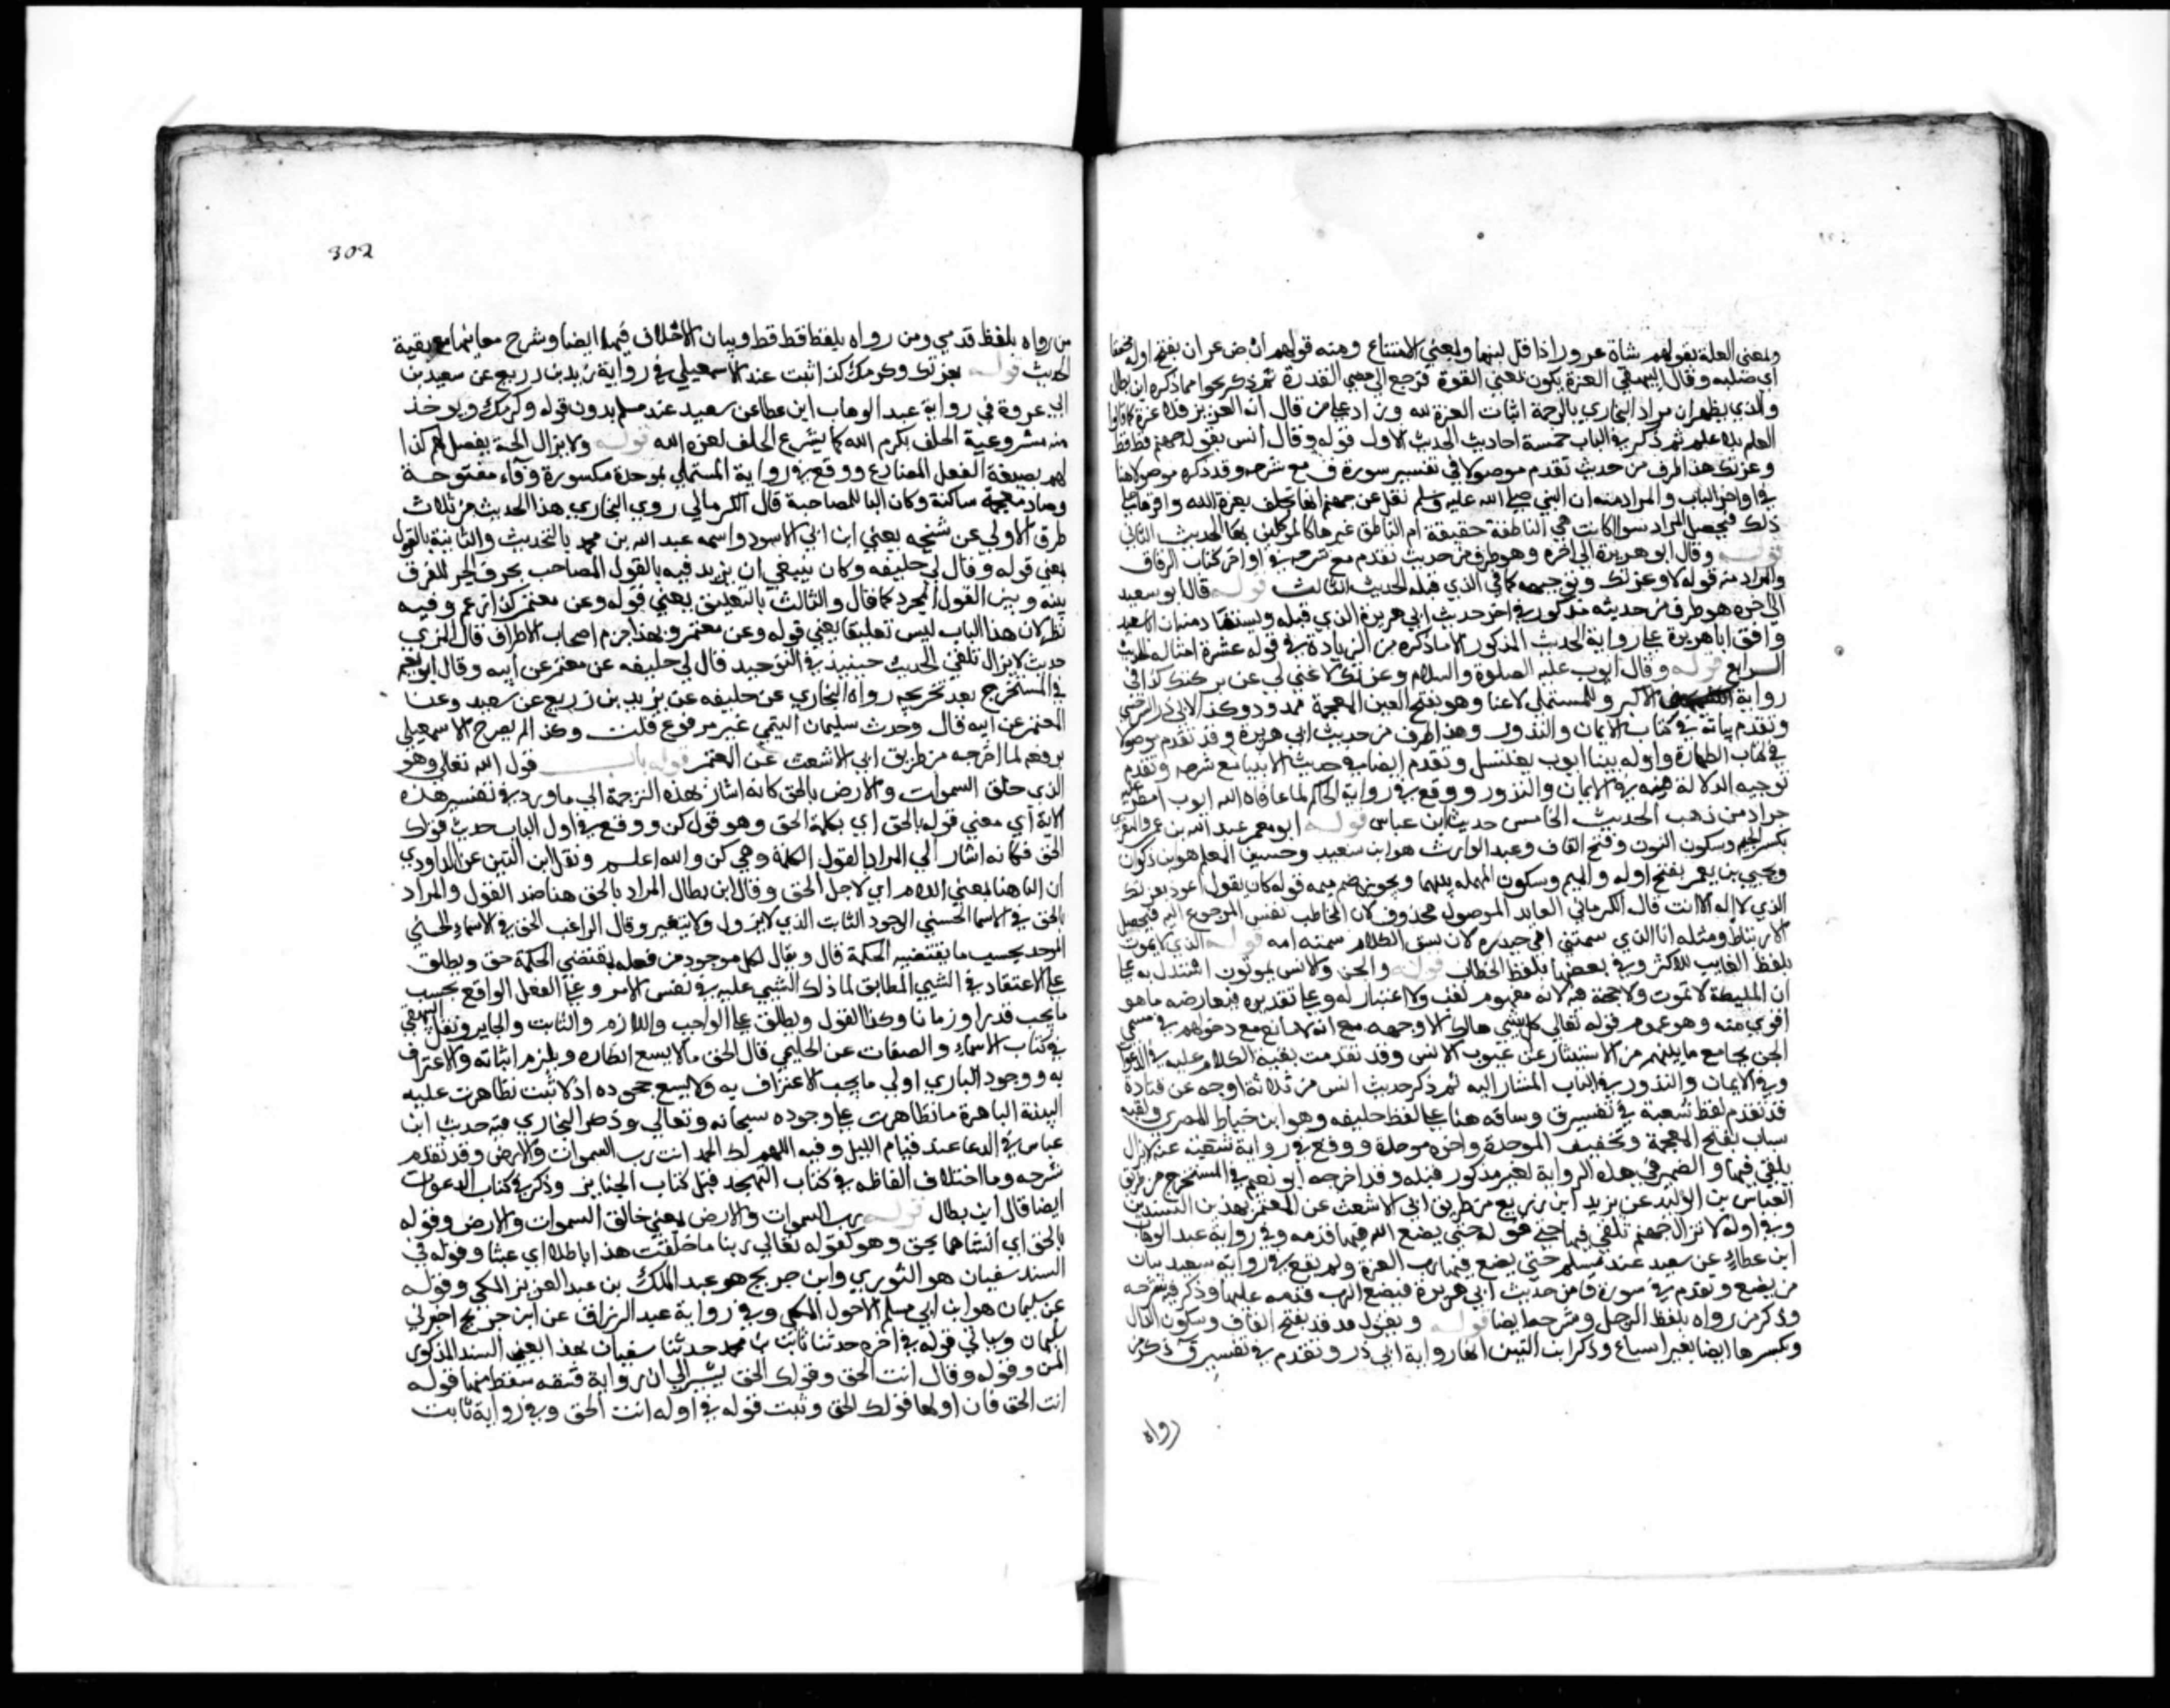 ولمعنى العلة بقولهم شاة عزوز اذا قل لبنها ولمعني الامتناع ومنه قولهم ارض عزاز بفتح اوله مخففا
اي صلبه وقال البيهقي العزة يكون بمعنى القوة فترجع الي معني القدرة ثم ذكر نحوا مما ذكره ابن بطال
والذي يظهر ان مراد البخاري بالترجمة اثبات العزة لله وردا علي من قال انه العزيز بلا عزة كما قالوا
العليم بلا علم ثم ذكر في الباب خمسة احاديث الحديث الاول قوله وقال انس يقول جهنم قط قط
وعزتك هذا طرف من حديث تقدم موصولا في تفسير سورة ق مع شرحه وقد ذكره موصولا هنا
في اواخر الباب والمراد منه ان النبي صلي الله عليه وسلم نقل عن جهنم انها تحلف بعزة الله واقرها علي
ذلك فيحصل المراد سوا كانت هي الناطقة حقيقة ام الناطق غيرها كالموكلين بها الحديث الثاني
قوله وقال ابو هريرة الي اخره وهو طرف من حديث تقدم مع شرحه في اواخر كتاب الرقاق
والمراد منه قوله لا وعزتك وتوجيهه كما في الذي قبله الحديث الثالث قوله قال ابو سعيد
الي اخره هو طرف من حديثه مذكور في اخر حديث ابي هريرة الذي قبله ويستفاد منه ان ابا سعيد
وافق ابا هريرة علي رواية الحديث المذكور الا ما ذكره من الزيادة في قوله عشرة امثاله الحديث
الرابع قوله وقال ايوب عليه الصلوة والسلام وعزتك لا غني لي عن بركتك كذا في
رواية الاكبر وللمستملي لا غنا وهو بفتح الغين المعجمة ممدود وكذا لابي ذر السرخسي
وتقدم بيانه في كتاب الايمان والنذور وهذا طرف من حديث ابي هريرة وقد تقدم موصولا
في كتاب الطهارة واوله بينا ايوب يغتسل وتقدم ايضا في حديث الانبيا مع شرحه وتقدم
توجيه الدلالة منه في الايمان والنذور ووقع في رواية الحاكم لما عافا الله ايوب امطر عليه
جراد من ذهب الحديث الخامس حديث ابن عباس قوله ابو معمر عبد الله بن عمرو المقري
بكسر الجيم وسكون النون وفتح القاف وعبد الوارث هو ابن سعيد وحسين المعلم هو بن ذكوان
ويحيي بن يعمر بفتح اوله والميم وسكون المهمله بينهما ويجوز ضم ميمه قوله كان يقول اعوذ بعزتك
الذي لا اله الا انت قال الكرماني العايد الموصول محذوف لان المخاطب نفس المرجوع اليه فيحصل
الارتباط ومثله انا الذي سمتني امي حيدره لان نسق الكلام سمته امه قوله الذي لا يموت
بلفظ الغايب للاكثر وفي بعضها بلفظ الخطاب قوله والجن والانس يموتون استدل به علي
ان المليكة لا تموت ولا حجة فيه لانه مفهوم لقب ولا اعتبار له وعلي تقديره فيعارضه ما هو
اقوي منه وهو عموم قوله تعالي كل شي هالك الا وجهه مع انه لا مانع مع دخولهم في مسمي
الجن بجامع ما بينهم من الاستتار عن عيون الانس وقد تقدمت بقية الكلام عليه في الدعوات
وفي الايمان والنذور في الباب المشار اليه ثم ذكر حديث انس من ثلاثة اوجه عن قتادة
قد تقدم لفظ شعبة في تفسير ق وساقه هنا علي لفظ خليفه وهو ابن خياط المصري ولقبه
سباب بفتح المعجمة وتخفيف الموحدة واخره موحدة ووقع في رواية شعبه عنه لا يزال
يلقي فيها والضمير في هذه الرواية لغير مذكور قبله وقد اخرجه ابو نعيم في المستخرج من طريق
العباس بن الوليد عن يزيد ابن زريع من طريق ابي الاشعث عن المعتمر بهذين السندين
وفي اوله لا تزال جهنم تلقي فيها حتى قوله حتى يضع الله فيها قدمه وفي رواية عبد الوهاب
ابن عطاء عن سعيد عند مسلم حتى يضع فيها رب العزة ولم يقع في رواية سعيد بيان
من يضع وتقدم في سورة ق من حديث ابي هريرة فيضع الرب قدمه عليها وذكر فيه شرحه
وذكر من رواه بلفظ الرجل وشرحه ايضا قوله ويقول قد قد بفتح القاف وسكون الدال
وبكسرها ايضا بغير اشباع وذكر ابن التين انها رواية ابي ذر وتقدم في تفسير ق ذكر من
رواه
302
من رواه بلفظ قدمي ومن رواه بلفظ قط قط وبيان الاختلاف فيها ايضا وشرح معانيها مع بقية
الحديث قوله بعزتك وكرمك كذا ثبت عند الاسمعيلي في رواية يزيد بن زريع عن سعيد بن
ابي عروة في رواية عبد الوهاب ابن عطا عن سعيد عند مسلم بدون قوله وكرمك ويوخذ
منه مشروعية الحلف بكرم الله كما يشرع الحلف لعزة الله قوله ولا يزال الجنة يفضل كذا
لهم بصيغة الفعل المضارع ووقع في رواية المستملي بموحدة مكسورة وفاء مفتوحة
وضاد معجمة ساكنة وكان البا للمصاحبة قال الكرماني روي البخاري هذا الحديث من ثلاث
طرق الاولي عن شيخه يعني ابن ابي الاسود واسمه عبد الله بن محمد بالتحديث والثانية بالقول
يعني قوله وقال لي خليفه وكان ينبغي ان يزيد فيه بالقول المصاحب بحرف الجر للفرق
بينه وبين القول المجرد كما قال والثالث بالتعليق يعني قوله وعن معتمر كذا زعم وفيه
نظر لان هذا الباب ليس تعليقا يعني قوله وعن معتمر وبهذا جزم اصحاب الاطراف قال المزي
حديث لا يزال تلقي الحديث حينيذ في التوحيد قال لي خليفه عن معتمر عن ابيه وقال ابو نعيم
في المستخرج بعد تخريجه رواه البخاري عن خليفه عن يزيد بن زريع عن سعيد وعنا
المعتمر عن ابيه قال وحديث سليمان التيمي غير مرفوع قلت وكذا لم يصرح الاسمعيلي
برفعه لما اخرجه من طريق ابي الاشعث عن المعتمر قوله باب قول الله تعالي وهو
الذي خلق السموات والارض بالحق كانه اشار بهذه الترجمة الي ما ورد في تفسير هذه
الاية اي معني قوله بالحق اي بكلمة الحق وهو قول كن ووقع في اول الباب حديث قولك
الحق فكانه اشار الي المراد بالقول الكلمة وهي كن والله اعلم ونقل ابن التين عن الداودي
ان البا هنا بمعني اللام اي لاجل الحق وقال ابن بطال المراد بالحق هنا ضد الهزل والمراد
بالحق في الاسما الحسني الموجود الثابت الذي لا يزول ولا يتغير وقال الراغب الحق في الاسماء الحسني
الموجد بحسب ما يقتضيه الحكمة قال ويقال لكل موجود من فعله بمقتضي الحكمة حق ويطلق
علي الاعتقاد في الشي المطابق لما ذلك الشي عليه في نفس الامر وعلي الفعل الواقع بحسب
ما يجب قدرا وزمانا وكذا القول ويطلق علي الواجب واللازم والثابت والجايز ونقل البيهقي
في كتاب الاسماء والصفات عن الحليمي قال الحق ما لا يسع انكاره ويلزم اثباته والاعتراف
به ووجود الباري اولي ما يجب الاعتراف به ولا يسع جحوده اذ لا مثبت تظاهرت عليه
البينة الباهرة ما تظاهرت علي وجوده سبحانه وتعالي وذكر البخاري فيه حديث ابن
عباس في الدعا عند قيام الليل وفيه اللهم لك الحمد انت رب السموات والارض وقد تقدم
شرحه وما اختلاف الفاظه في كتاب التهجد قبل كتاب الجنايز وذكر في كتاب الدعوات
ايضا قال ابن بطال قوله رب السموات والارض يعني خالق السموات والارض وقوله
بالحق اي انشاهما بحق وهو كقوله تعالي ربنا ما خلقت هذا باطلا اي عبثا وقوله في
السند سفيان هو الثوري وابن جريج هو عبد الملك بن عبد العزيز المكي وقوله
عن سليمان هو ابن ابي مسلم الاحول المكي وفي رواية عبد الرزاق عن ابن جريج اخبرني
سليمان وسياتي قوله في اخره حدثنا ثابت بن محمد حدثنا سفيان بهذا يعني السند المذكور
المتن وقوله وقال انت الحق وقولك الحق يشير الي ان رواية قبيصه سقط منها قوله
انت الحق فان اولها قولك الحق وثبت قوله في اوله انت الحق وفي رواية ثابت